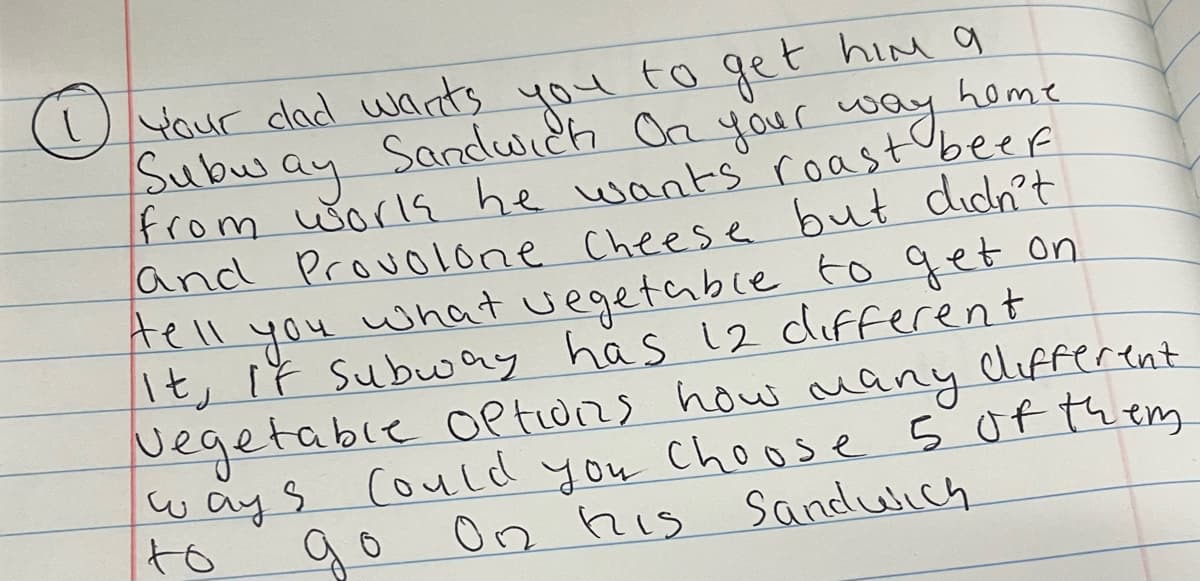 ① Your dad wants you to get him a
Subway Sandwich On your way home
from work he wants roast beef
and Provolone Cheese but didn't
tell you what vegetable to get on
It, If subway has 12 different
vegetable options how many different
ways Could you Choose 5 of them
to go On his Sandwich